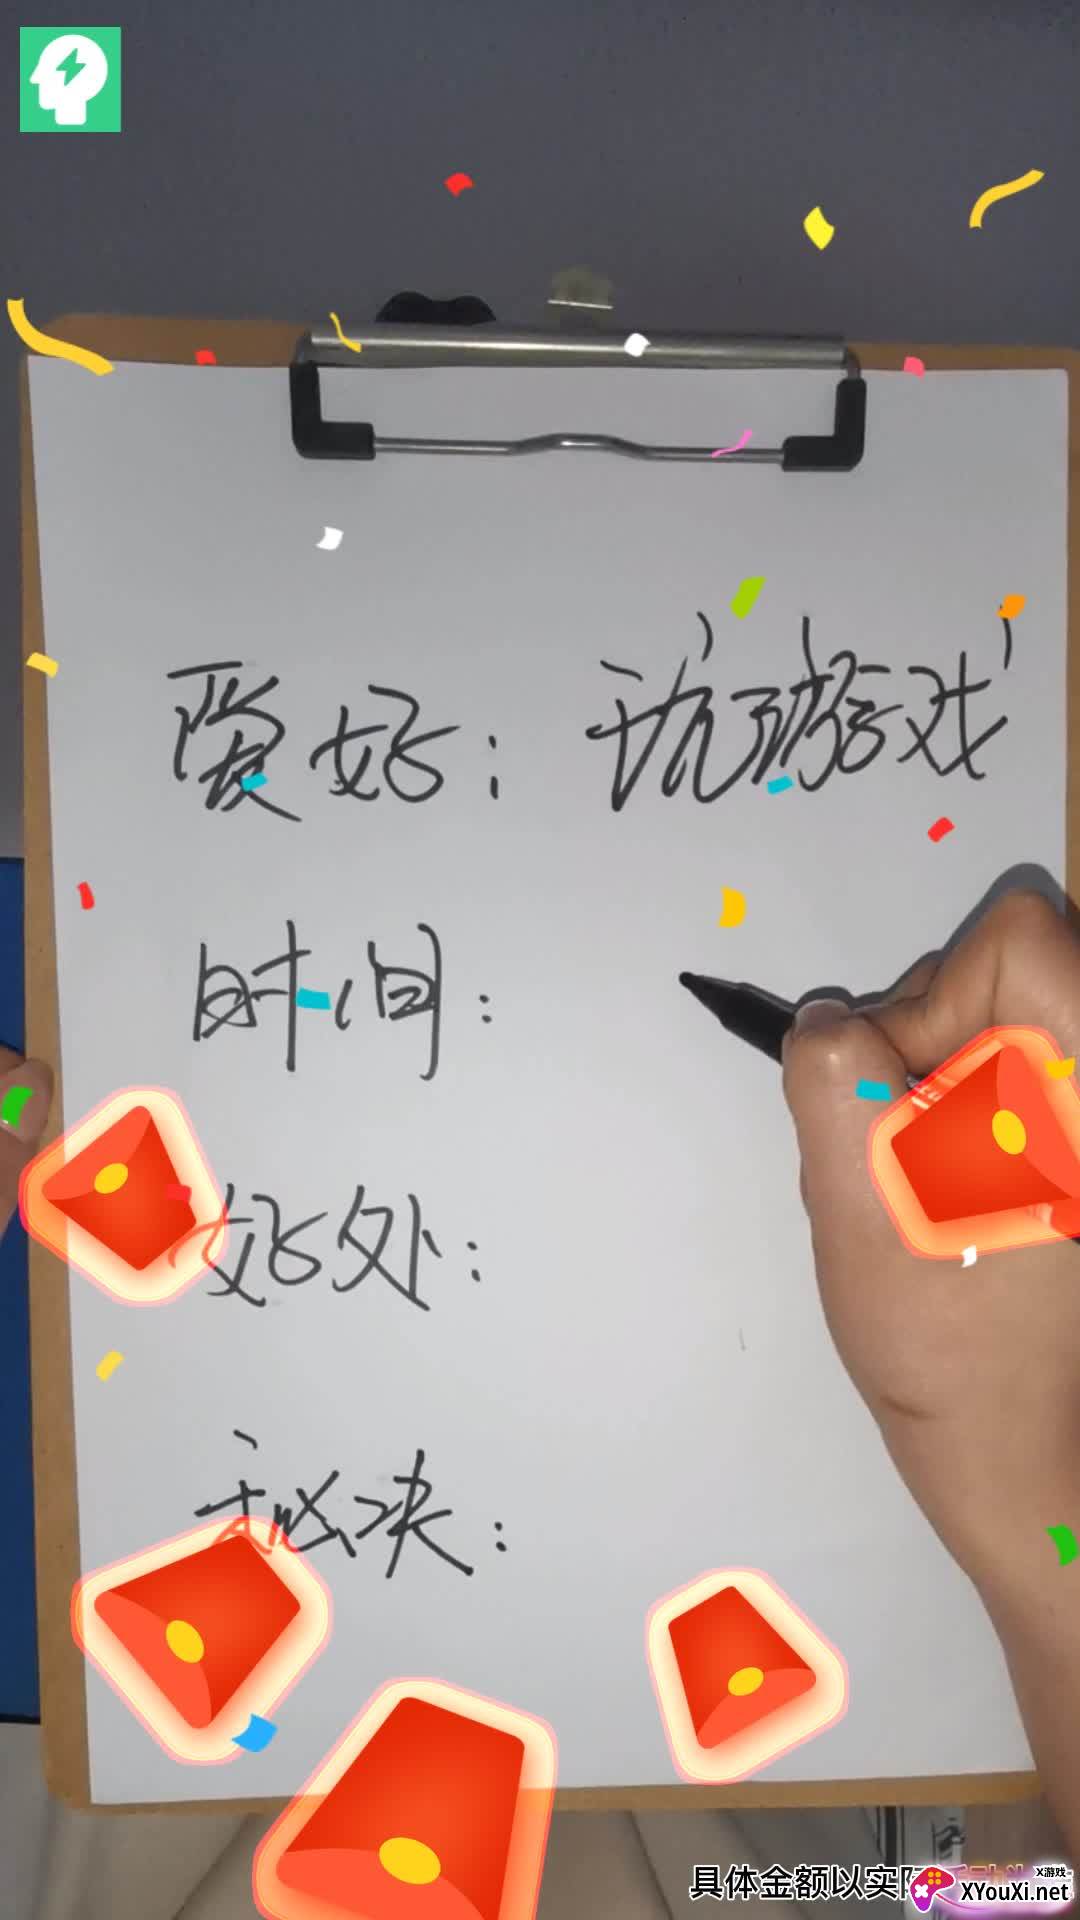 爱好：玩游戏
时间：
好处：
秘决：
具体金额以实际
X游戏
XYouXi.net